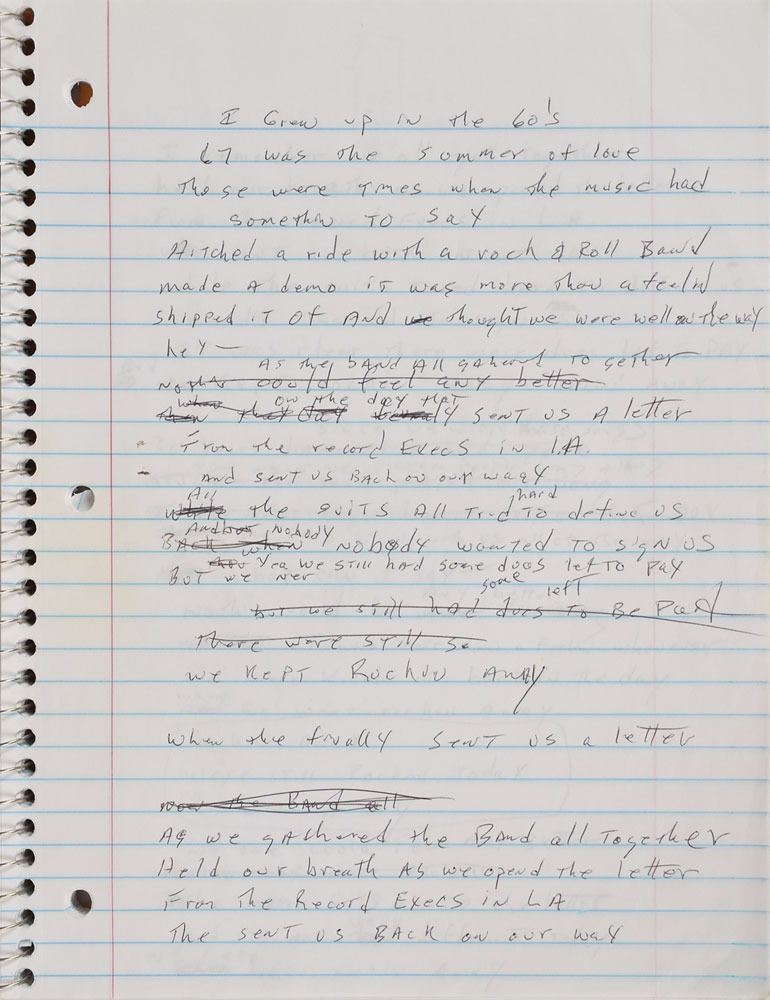 I Grew up in the 60's
67 was the summer of love
Those were Tmes when the music had
somethin TO SAY
Hitched a ride with a rock & Roll Band
made A demo it was more than a feelin
shipped IT Of AND we thought we were well on the way
hey —
As the bAND All gaherd TO gether
could feel any better
when on the day that
then that day SENT US A letter
From the record Execs in L.A.
AND SENT US BACK ON our waqy
All hard
the suits All Tried TO define US
And Nobody
BACK when Nobody wanted TO sign US
Yea we still had some dues left TO PAY
BUT we ner
some left
but we still had dues TO Be Paid
There were still so
we KEPT Rockin AWAY
when the finally SENT US a letter
now the BAND all
AS we gathered the BAnd all Together
Held our breath AS we opend the letter
From The Record Execs in LA
The SENT US BACK on our way